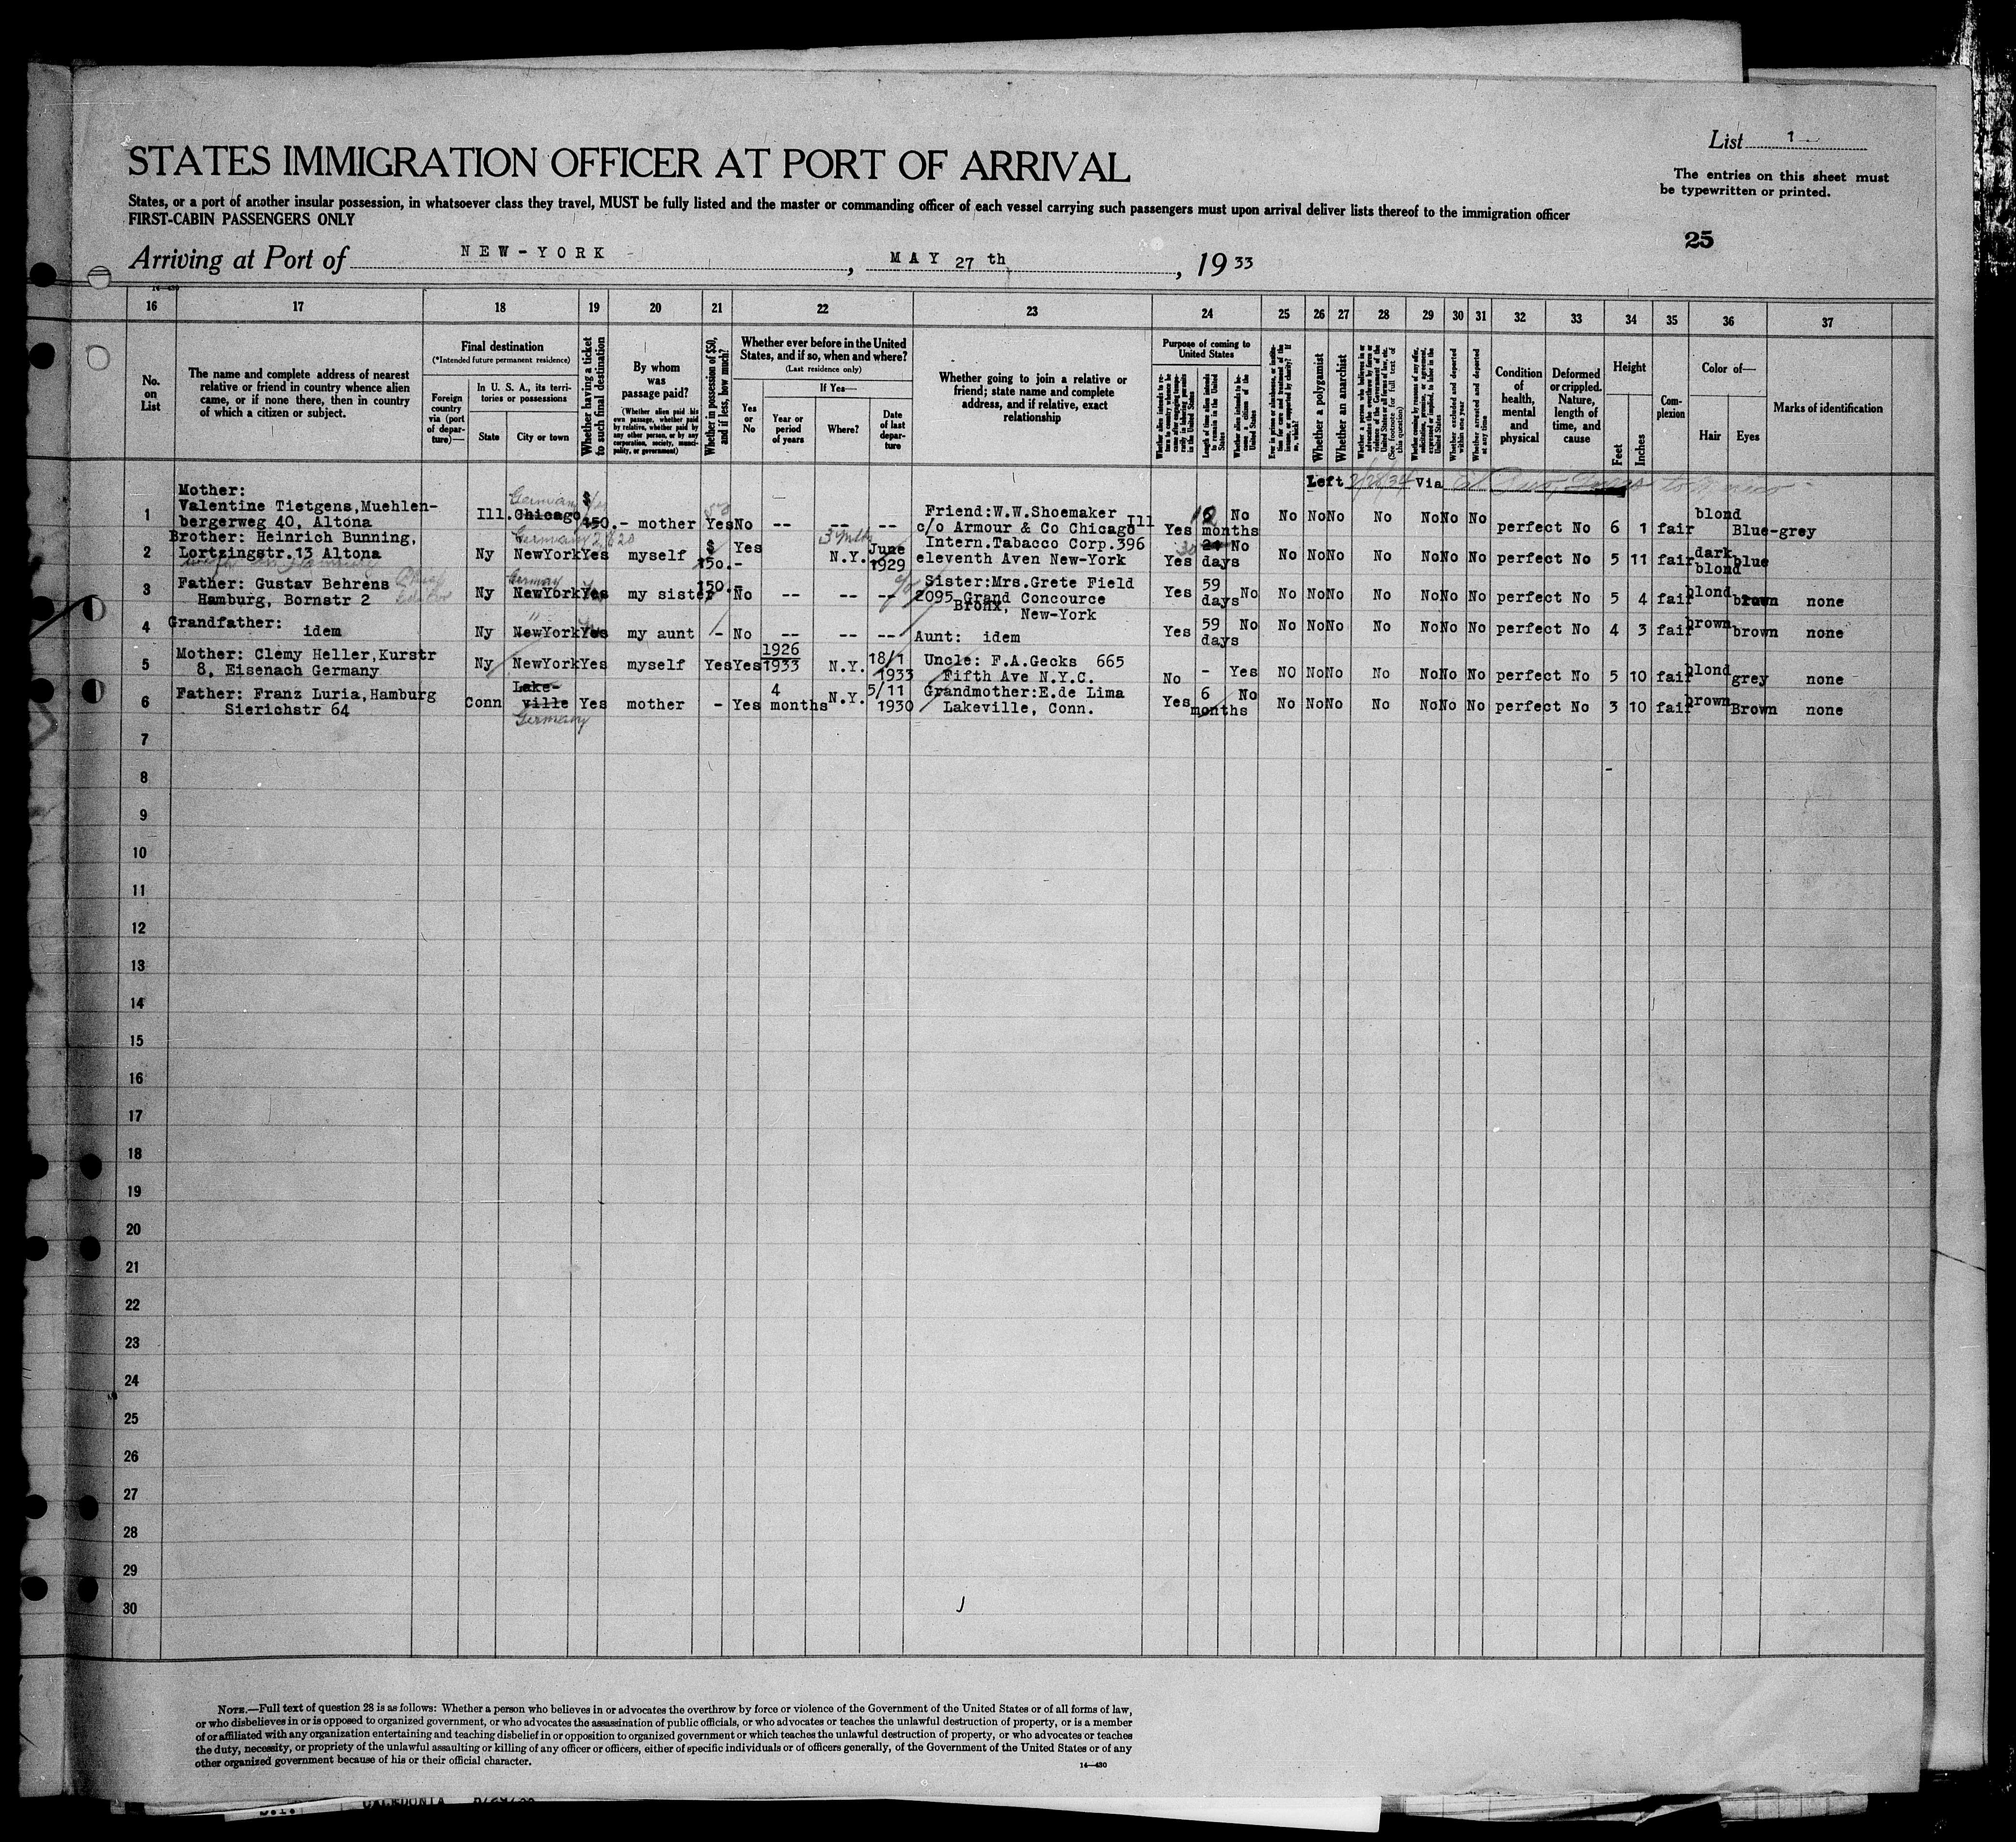 List 1
STATES IMMIGRATION OFFICER AT PORT OF ARRIVAL
The entries on this sheet must
be typewritten or printed.
States, or a port of another insular possession, in whatsoever class they travel, MUST be fully listed and the master or commanding officer of each vessel carrying such passengers must upon arrival deliver lists thereof to the immigration officer
FIRST-CABIN PASSENGERS ONLY
25
Arriving at Port of NEW-YORK, MAY 27 th, 1933
16 17 18 19 20 21 22 23 24 25 26 27 28 29 30 31 32 33 34 35 36 37
No. on List
The name and complete address of nearest
relative or friend in country whence alien
came, or if none there, then in country
of which a citizen or subject.
Final destination
(*Intended future permanent residence)
Foreign country via (port of departure)—
In U. S. A., its territories or possessions
State
City or town
Whether having a ticket to such final destination
By whom was passage paid?
(Whether alien paid his own passage, whether paid by relative, whether paid by any other person, or by any corporation, society, municipality, or government)
Whether in possession of $50, and if less, how much?
Whether ever before in the United
States, and if so, when and where?
(Last residence only)
Yes or No
If Yes—
Year or period of years
Where?
Date of last departure
Whether going to join a relative or
friend; state name and complete
address, and if relative, exact
relationship
Purpose of coming to
United States
Length of time alien intends to remain in the United States
Whether alien intends to become a citizen of the United States
Whether a polygamist
Whether an anarchist
(See footnote for full text of this question)
Whether excluded and deported within one year
Whether arrested and deported at any time
Condition of health, mental and physical
Deformed or crippled. Nature, length of time, and cause
Height
Feet
Inches
Complexion
Color of—
Hair
Eyes
Marks of identification
Left Via
1 Mother:
Valentine Tietgens, Muehlen-
bergerweg 40, Altona Ill. Chicago $ 150.- mother Yes No -- -- -- Friend:W.W.Shoemaker
c/o Armour & Co Chicago Ill Yes months No No No No No No No No perfect No 6 1 fair blond Blue-grey
2 Brother: Heinrich Bunning,
Lortzingstr.13 Altona Ny NewYork Yes myself $ 150.- Yes N.Y. June 1929 Intern.Tabacco Corp.396
eleventh Aven New-York Yes days No No No No No No No No perfect No 5 11 fair dark blond blue
3 Father: Gustav Behrens
Hamburg, Bornstr 2 Ny NewYork Yes my sister 150.- No -- -- -- Sister:Mrs.Grete Field
2095 Grand Concource
Bronx, New-York Yes 59 days No No No No No No No No perfect No 5 4 fair blond brown none
4 Grandfather:
idem Ny NewYork Yes my aunt - No -- -- -- Aunt: idem Yes 59 days No No No No No No No No perfect No 4 3 fair brown brown none
5 Mother: Clemy Heller, Kurstr
8, Eisenach Germany Ny NewYork Yes myself Yes Yes 1926 1933 N.Y. 18/1 1933 Uncle: F.A.Gecks 665
Fifth Ave N.Y.C. No - Yes NO No No No No No No perfect No 5 10 fair blond grey none
6 Father: Franz Luria, Hamburg
Sierichstr 64 Conn Lake-ville Germany Yes mother - Yes 4 months N.Y. 5/11 1930 Grandmother:E.de Lima
Lakeville, Conn. Yes 6 months No No No No No No No No perfect No 3 10 fair brown Brown none
7
8
9
10
11
12
13
14
15
16
17
18
19
20
21
22
23
24
25
26
27
28
29
30
NOTE.—Full text of question 28 is as follows: Whether a person who believes in or advocates the overthrow by force or violence of the Government of the United States or of all forms of law,
or who disbelieves in or is opposed to organized government, or who advocates the assassination of public officials, or who advocates or teaches the unlawful destruction of property, or is a member
of or affiliated with any organization entertaining and teaching disbelief in or opposition to organized government or which teaches the unlawful destruction of property, or who advocates or teaches
the duty, necessity, or propriety of the unlawful assaulting or killing of any officer or officers, either of specific individuals or of officers generally, of the Government of the United States or of any
other organized government because of his or their official character.
14—430